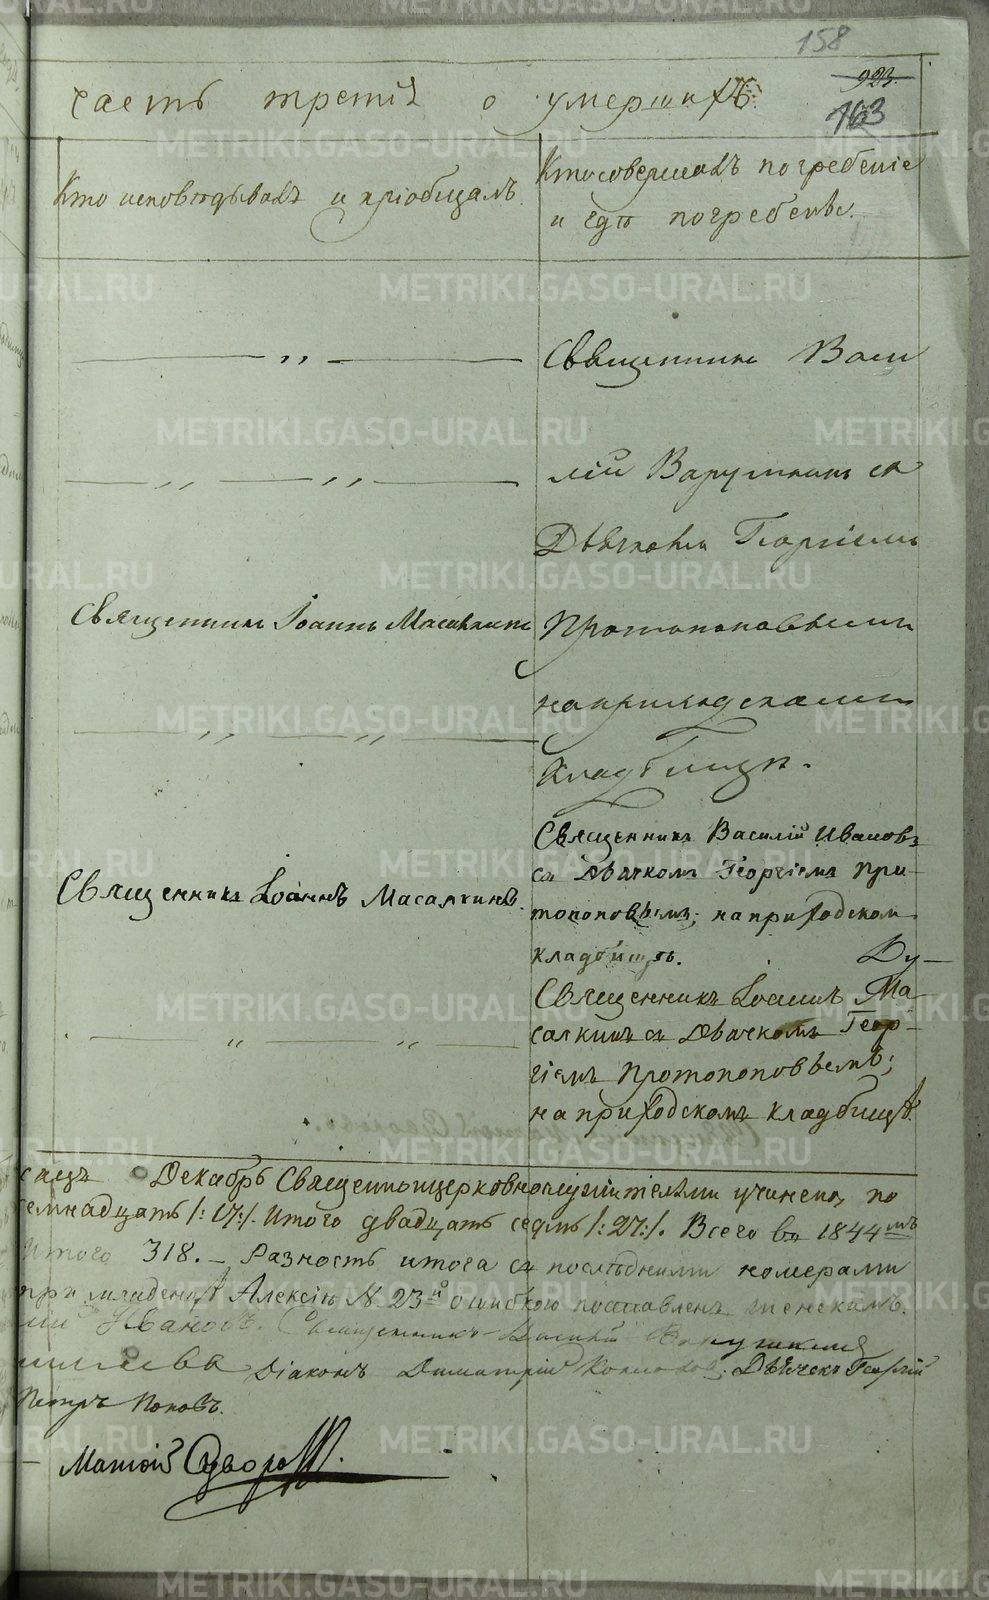 158
923.
163
часть третія о умершихъ.
Кто исповѣдывалъ и пріобщалъ.
Кто совершалъ погребеніе
и гдѣ погребены.
Священникъ Васи
лій Варушкинъ съ
Дьячкомъ Георгіемъ
Священникъ Іоаннъ Масалкинъ
Протопоповымъ
на приходскомъ
кладбищѣ.
Священникъ Василій Ивановъ
съ Дьячкомъ Георгіемъ Про-
Священникъ Іоаннъ Масалкинъ.
топоповымъ; на приходскомъ
кладбищѣ.
Священникъ Іоаннъ Ма
салкинъ съ Дьячкомъ Геор-
гіемъ Протопоповымъ;
на приходскомъ кладбищѣ.
сяцъ Декабрь Священноцерковнослужителями учинена, по
семнадцать /:17:/. Итого двадцать седмь /:27:/. Всего въ 1844мъ
Итого 318. – Разность итога съ послѣдними номерами
при младенцѣ Алексіѣ N. 23й ошибкою поставленъ женскимъ.
Ивановъ. Священникъ Василій Варушкинъ
Діаконъ Димитрій Дьячекъ Георгій
Петръ Поповъ.
Матѳій Суворовъ.
METRIKI.GASO-URAL.RU